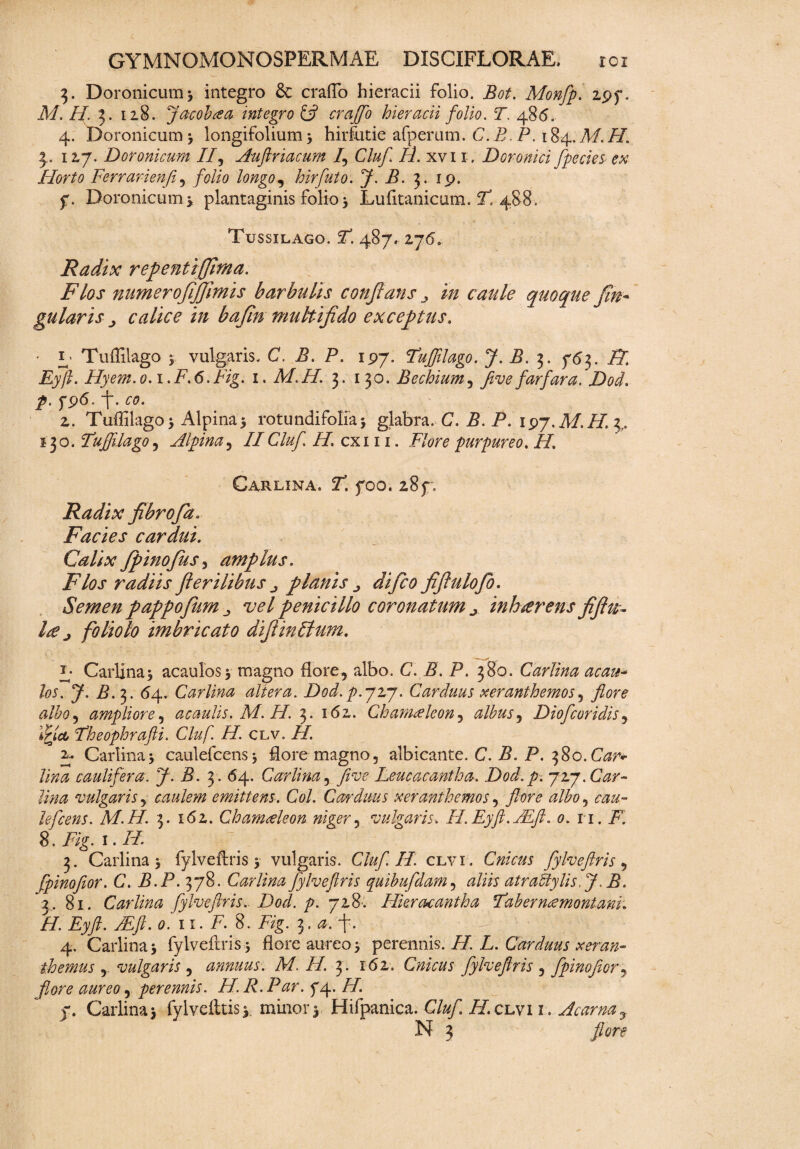 GYMNOMONOSPERMAE DISCIFLORAE. 101
3. Doronicum; integro & craſſo hieracii folio. Bot. Monſp. 295.
M. H. 3. 128. Jacobæa integro & craſſo hieracii folio. T. 486.
4. Doronicum; longifolium; hirſutie aſperum. C. B. P. 184. M. H.
3. 127. Doronicum II, Auſtriacum I, Cluſ. H. XVII. Doronici ſpecies ex
Horto Ferrarienſi, folio longo, hirſuto. J. B. 3. 19.
5. Doronicum; plantaginis folio; Luſitanicum. T. 488.
TUSSILAGO. T. 487. 276.
Radix repentiſſima.
Flos numeroſiſſimis barbulis conſtans, in caule quoque ſin-
gularis, calice in baſin multifido exceptus.
1. Tuſſilago; vulgaris. C. B. P. 197. Tuſſilago. J. B. 3. 563. H.
Eyſt. Hyem. o. 1. F. 6. Fig. 1. M. H. 3. 130. Bechium, ſive farfara. Dod.
p. 596. †. co.
2. Tuſſilago; Alpina; rotundifolia; glabra. C. B. P. 197. M. H. 3.
130. Tuſſilago, Alpina, II Cluſ. H. CXIII. Flore purpureo. H.
CARLINA. T. 500. 285.
Radix fibroſa.
Facies cardui.
Calix ſpinoſus, amplus.
Flos radiis ſterilibus, planis, diſco fiſtuloſo.
Semen pappoſum, vel penicillo coronatum, inhærens fiſtu-
læ, foliolo imbricato diſtinctum.
1. Carlina; acaulos; magno flore, albo. C. B. P. 380. Carlina acau-
los. J. B. 3. 64. Carlina altera. Dod. p. 727. Carduus xeranthemos, flore
albo, ampliore, acaulis. M. H. 3. 162. Chamæleon, albus, Dioſcoridis,
ἰξία Theophraſti. Cluſ. H. CLV. H.
2. Carlina; cauleſcens; flore magno, albicante. C. B. P. 380. Car-
lina caulifera. J. B. 3. 64. Carlina, ſive Leucacantha. Dod. p. 727. Car-
lina vulgaris, caulem emittens. Col. Carduus xeranthemos, flore albo, cau-
leſcens. M. H. 3. 162. Chamæleon niger, vulgaris. H. Eyſt. Æſt. o. 11. F.
8. Fig. 1. H.
3. Carlina; ſylveſtris; vulgaris. Cluſ. H. CLVI. Cnicus ſylveſtris,
ſpinoſior. C. B. P. 378. Carlina ſylveſtris quibuſdam, aliis atractylis. J. B.
3. 81. Carlina ſylveſtris. Dod. p. 728. Hieracantha Tabernæmontani.
H. Eyſt. Æſt. o. 11. F. 8. Fig. 3. a. †.
4. Carlina; ſylveſtris; flore aureo; perennis. H. L. Carduus xeran-
themus, vulgaris, annuus. M. H. 3. 162. Cnicus ſylveſtris, ſpinoſior,
flore aureo, perennis. H. R. Par. 54. H.
5. Carlina; ſylveſttis; minor; Hiſpanica. Cluſ. H. CLVII. Acarna,
N 3 flore